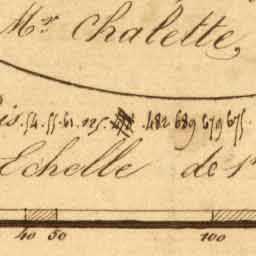 Mr. Chalette,
is. 54. 55. 61. 125. 482 689 679 675.
Echelle de 1
40 50 100